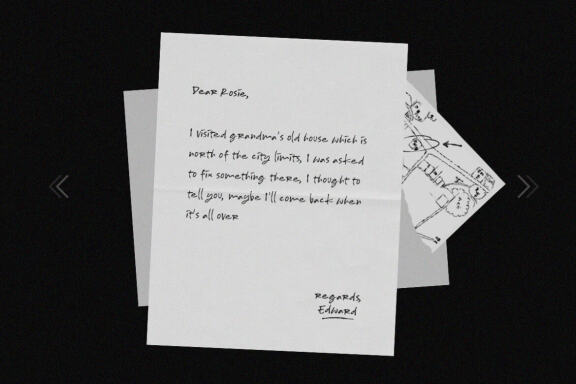 Dear Rosie,
I visited grandma's old house which is
north of the city limits, I was asked
to fix something there, I thought to
tell you, maybe I'll come back when
it's all over
regards
Edward